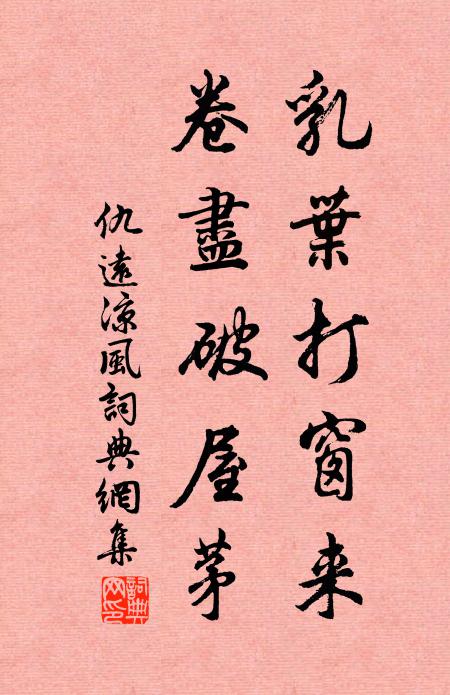 乳葉打窗来
卷盡破屋茅
仇遠涼風詞典網集
詞典網印